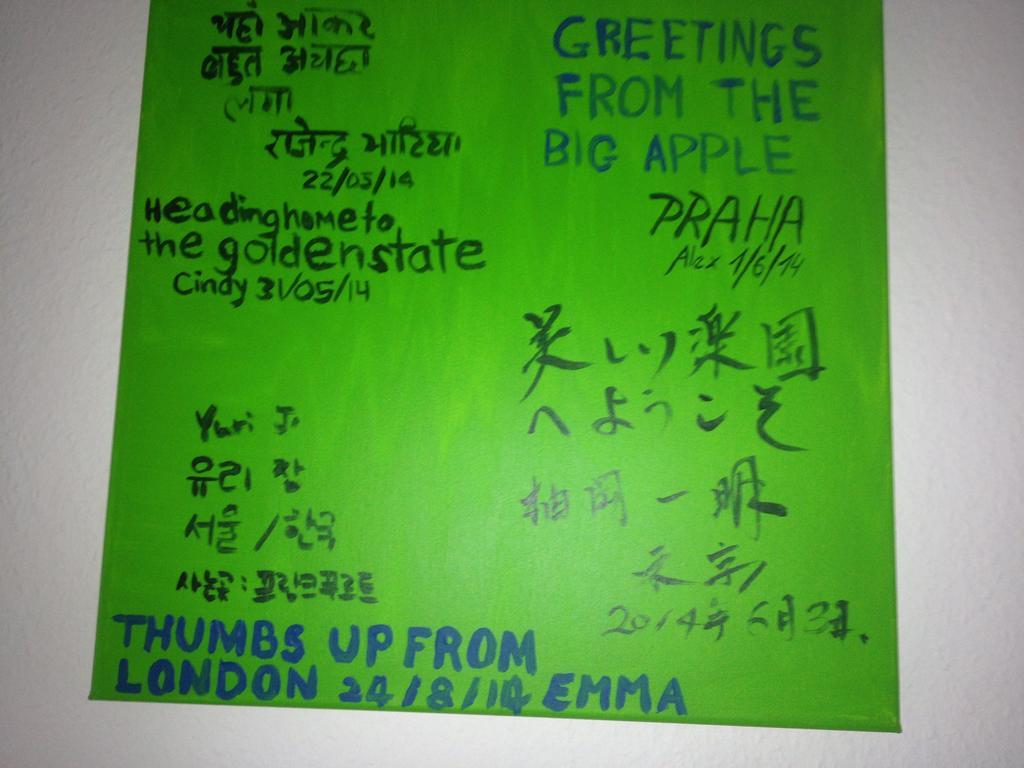 यहाँ आकर
बहुत अच्छा
लगा
राजेन्द्र भाटिया
22/05/14
Heading home to
the golden state
Cindy 31/05/14
GREETINGS
FROM THE
BIG APPLE
PRAHA
Alex 1/6/14
美しい楽園
へようこそ
柏岡 一明
東京
2014年6月3日.
Yuri J.
유리 장
서울 / 한국
사는곳: 프랑크푸르트
THUMBS UP FROM
LONDON 24/8/14 EMMA